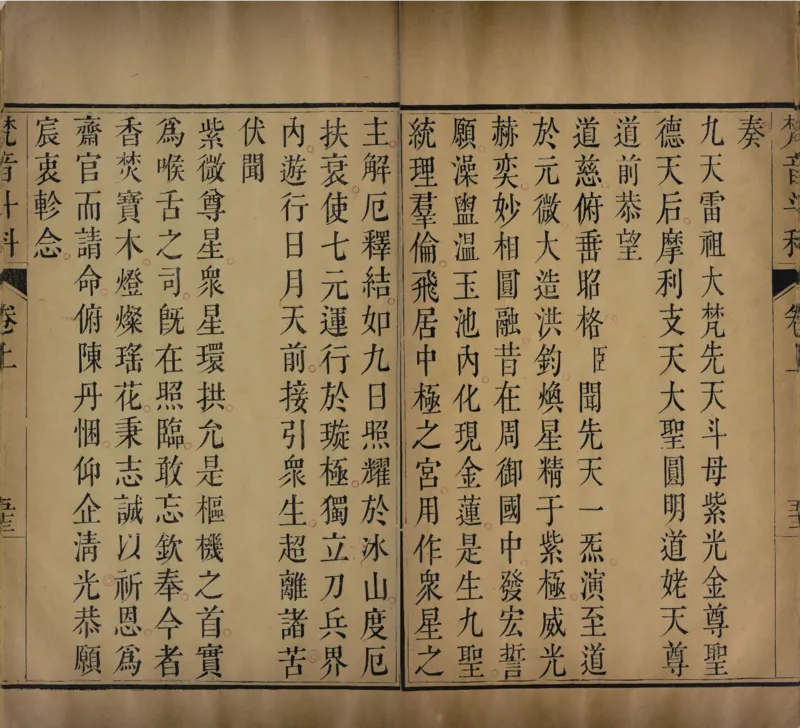 奏
九天雷祖大梵先天斗母紫光金尊聖
德天后摩利支天大聖圓明道姥天尊
道前恭望
道慈俯垂昭格臣聞先天一炁演至道
於元微大造洪鈞煥星精于紫極威光
赫奕妙相圓融昔在周御國中發宏誓
願澡盥溫玉池內化現金蓮是生九聖
統理羣倫飛居中極之宮用作衆星之
主解厄釋結如九日照耀於冰山度厄
扶衰使七元運行於璇極獨立刀兵界
內遊行日月天前接引衆生超離諸苦
伏聞
紫微尊星衆星環拱允是樞機之首實
爲喉舌之司旣在照臨敢忘欽奉今者
香焚寶木燈燦瑤花秉志誠以祈恩爲
齋官而請命俯陳丹悃仰企淸光恭願
宸衷軫念
梵音斗科 卷上